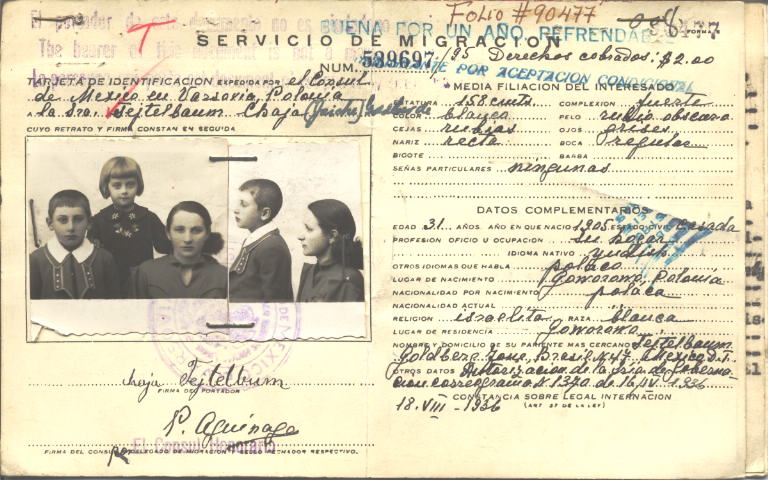 El portador de este documento no es
The bearer of this document is not
BUENA POR UN AÑO, REFRENDABLE
FOLIO #90477
SERVICIO DE MIGRACION
FORMA
NUM. 539697 /95 Derechos cobrados: $2.00
POR ACEPTACION CONDICIONAL
TARJETA DE IDENTIFICACION EXPEDIDA POR el Consul
de Mexico en Varsovia, Polonia
a la Sra. Tejtelbaum Chaja
CUYO RETRATO Y FIRMA CONSTAN EN SEGUIDA
Chaja Tejtelbum
FIRMA DEL PORTADOR
P. Aguinaga
El Consul Honorario
MEDIA FILIACION DEL INTERESADO
ESTATURA 158 cmts. COMPLEXION fuerte
COLOR blanco PELO rubio obscuro
CEJAS rubias OJOS grises
NARIZ recta BOCA regular
BIGOTE BARBA
SEÑAS PARTICULARES ningunas
DATOS COMPLEMENTARIOS
EDAD 31 AÑOS. AÑO EN QUE NACIO 1905 ESTADO CIVIL casada
PROFESION OFICIO U OCUPACION su hogar
IDIOMA NATIVO yudish
OTROS IDIOMAS QUE HABLA polaco
LUGAR DE NACIMIENTO Goworowo, Polonia
NACIONALIDAD POR NACIMIENTO polaca
NACIONALIDAD ACTUAL
RELIGION israelita RAZA blanca
LUGAR DE RESIDENCIA Goworowo
NOMBRE Y DOMICILIO DE SU PARIENTE MAS CERCANO Tejtelbaum
Goldberg Jone, Brasil N 47 Mexico D.F.
OTROS DATOS Autorizacion de la Sria de Goberna-
cion correograma N 1370 de 16.IV.1936
CONSTANCIA SOBRE LEGAL INTERNACION
18.VIII-1936 (ART 57 DE LA LEY)